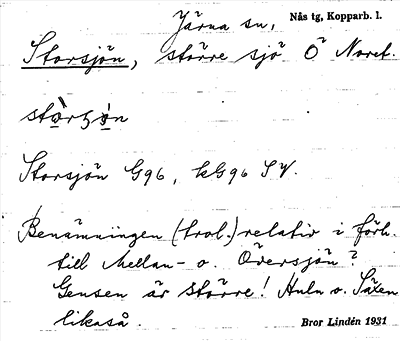 Järna sn, Nås tg, Kopparb. l.
Storsjön, större sjö Ö Noret.
Storsjön G96, kG96 SV.
Benämningen (trol.) relativ i förh.
till Mellan- o. Översjön?
Gensen är större! Huln o. Säxen
likaså.
Bror Lindén 1931